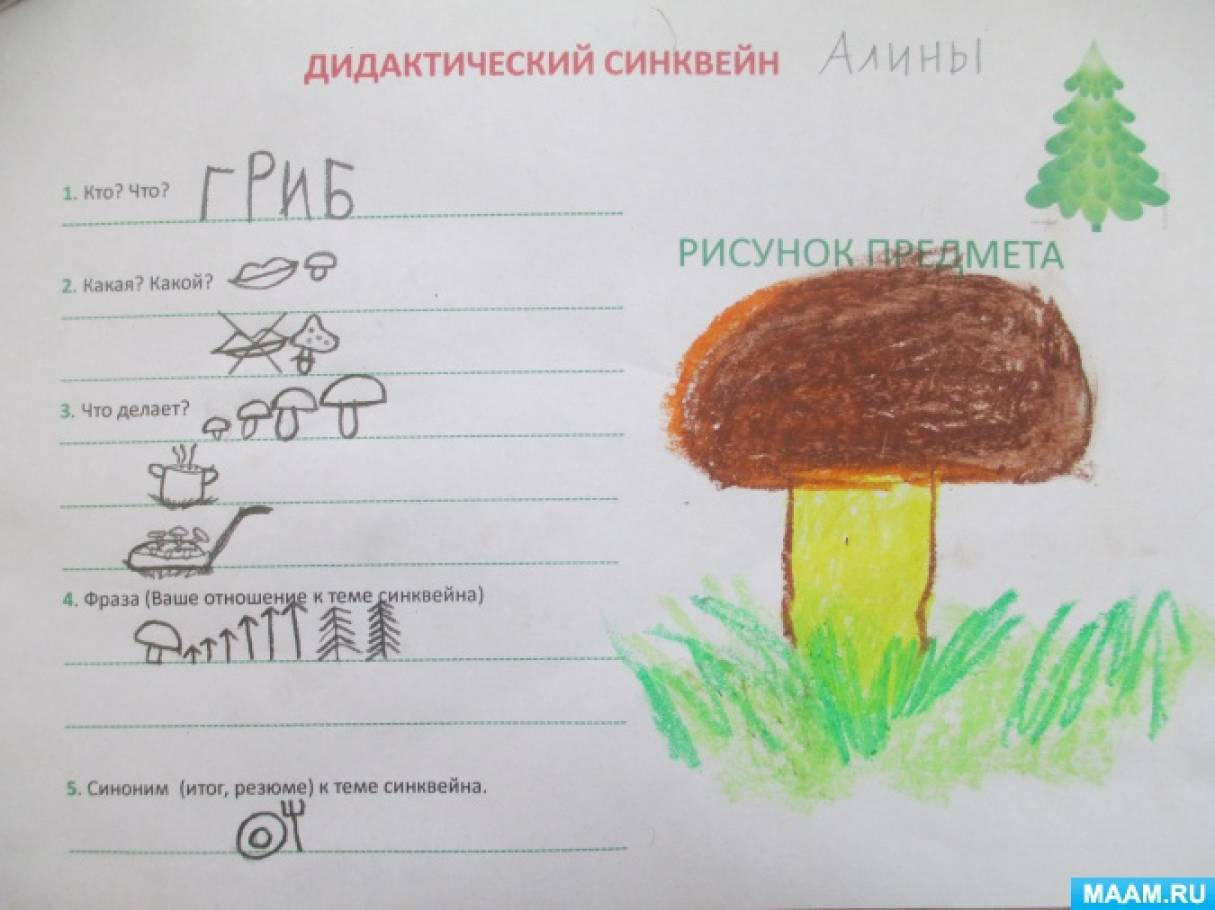 ДИДАКТИЧЕСКИЙ СИНКВЕЙН Алины
1. Кто? Что? ГРИБ
2. Какая? Какой?
3. Что делает?
4. Фраза (Ваше отношение к теме синквейна)
5. Синоним (итог, резюме) к теме синквейна.
РИСУНОК ПРЕДМЕТА
MAAM.RU